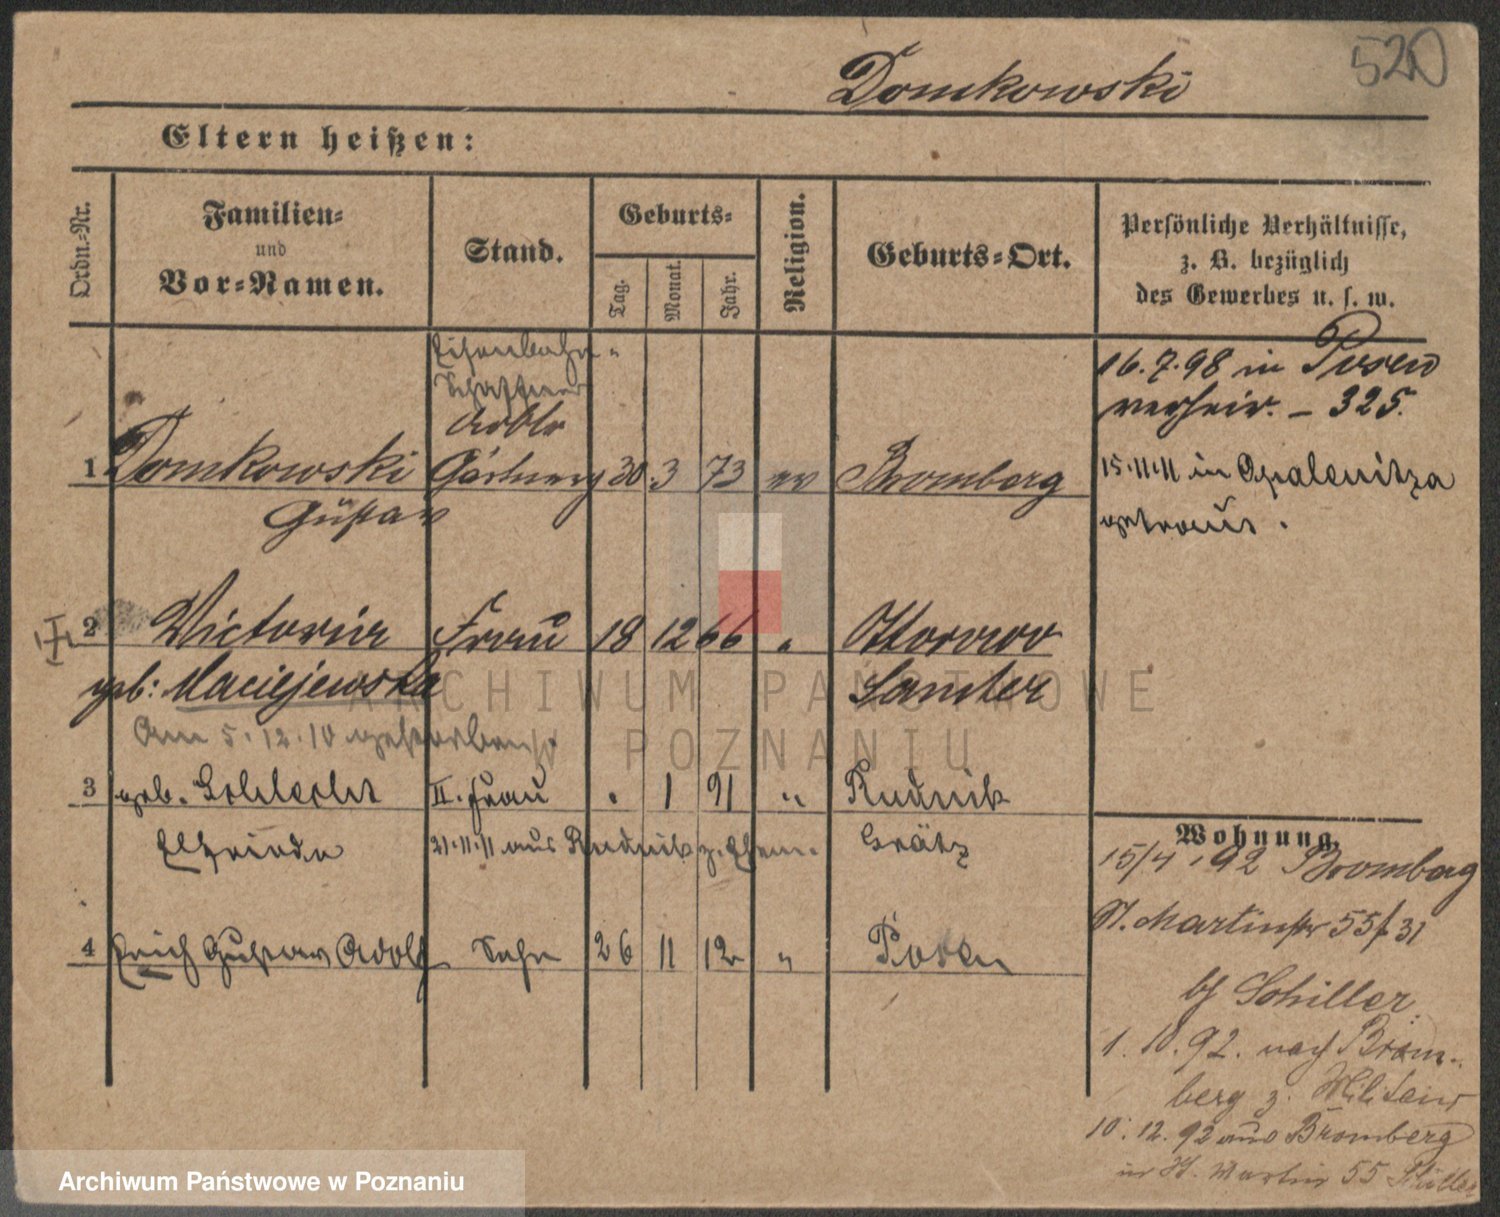 520
Domkowski
Eltern heißen:
Ordn.-Nr.
Familien-
und
Vor-Namen.
Stand.
Geburts-
Tag.
Monat.
Jahr.
Religion.
Geburts-Ort.
Persönliche Verhältnisse,
z. B. bezüglich
des Gewerbes u. s. w.
Eisenbahn-
Schaffner
16.7.98 in Posen
verheir. – 325.
1 Domkowski Gärtner 30 3 73 ev Bromberg
15.11.11 in Opalenitza
Gustav
getraut.
2 Victoria Frau 18 12 66 " Ottorowo
geb: Maciejewska Samter
Am 5.12.10 gestorben
3 geb. Schlecht II. Frau " 1 91 " Rudnik
Elfriede 21.11.11 aus Rudnik z. Ehem. Grätz
4 Erich Gustav Adolf Sohn 26 11 12 " Posen
Wohnung.
15/4 92 Bromberg
St. Martinstr 55/31
bei Schiller
1.10.92. nach Brom-
berg z. Militair
10.12.92 aus Bromberg
in St. Martin 55 Schiller
ARCHIWUM PAŃSTWOWE
W POZNANIU
Archiwum Państwowe w Poznaniu